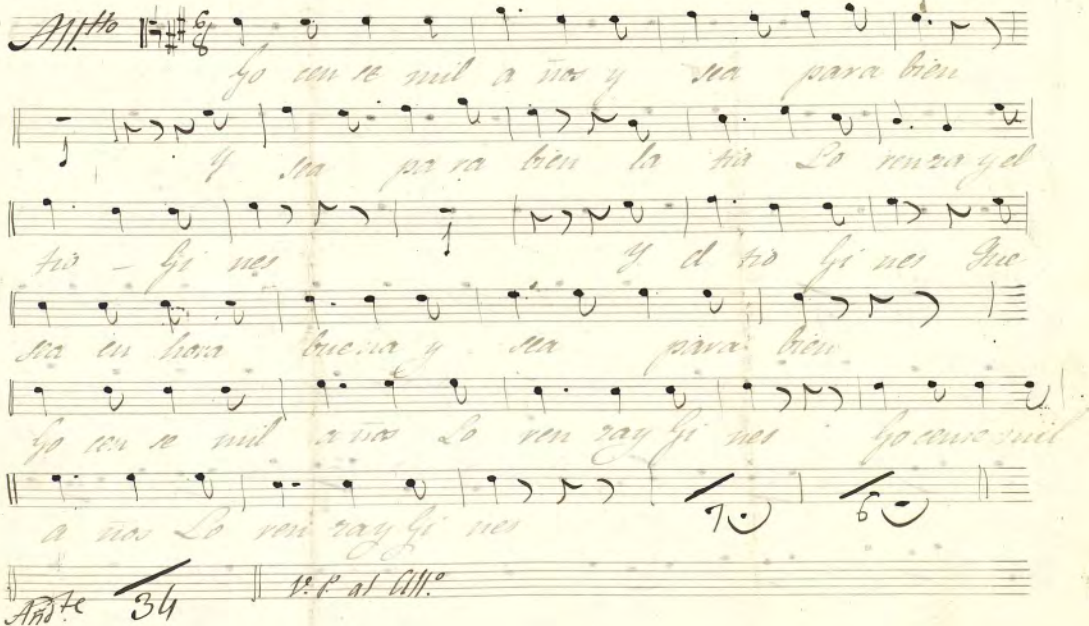 All.tto 6/8
Go cen se mil a ños y sea para bien
Y sea pa ra bien la tia Lo renza y el
tio - Gi nes Y el tio Gi nes Que
sea en hora buena y sea para bien
Go cen se mil a ños Lo ren zay Gi nes Gocense mil
a ños Lo ren zay Gi nes 7 6
And.te 34 V.e P. al All.o